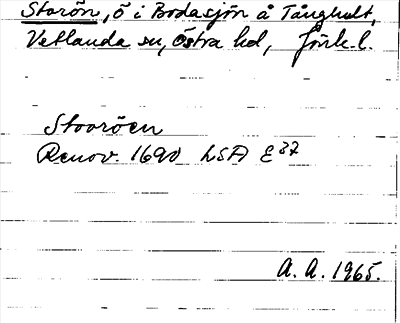 Storön, ö i Bodasjön å Tångholt,
Vetlanda sn, östra hd, Jönk. l.
Stooröen
Renov. 1690 LSA E 37
A. A. 1965.